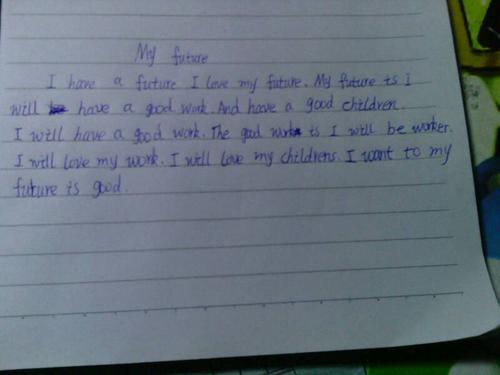 My future
I have a future I love my future. My future is I
will have a good work. And have a good children.
I will have a good work. The good work is I will be worker.
I will love my work. I will love my childrens. I want to my
future is good.